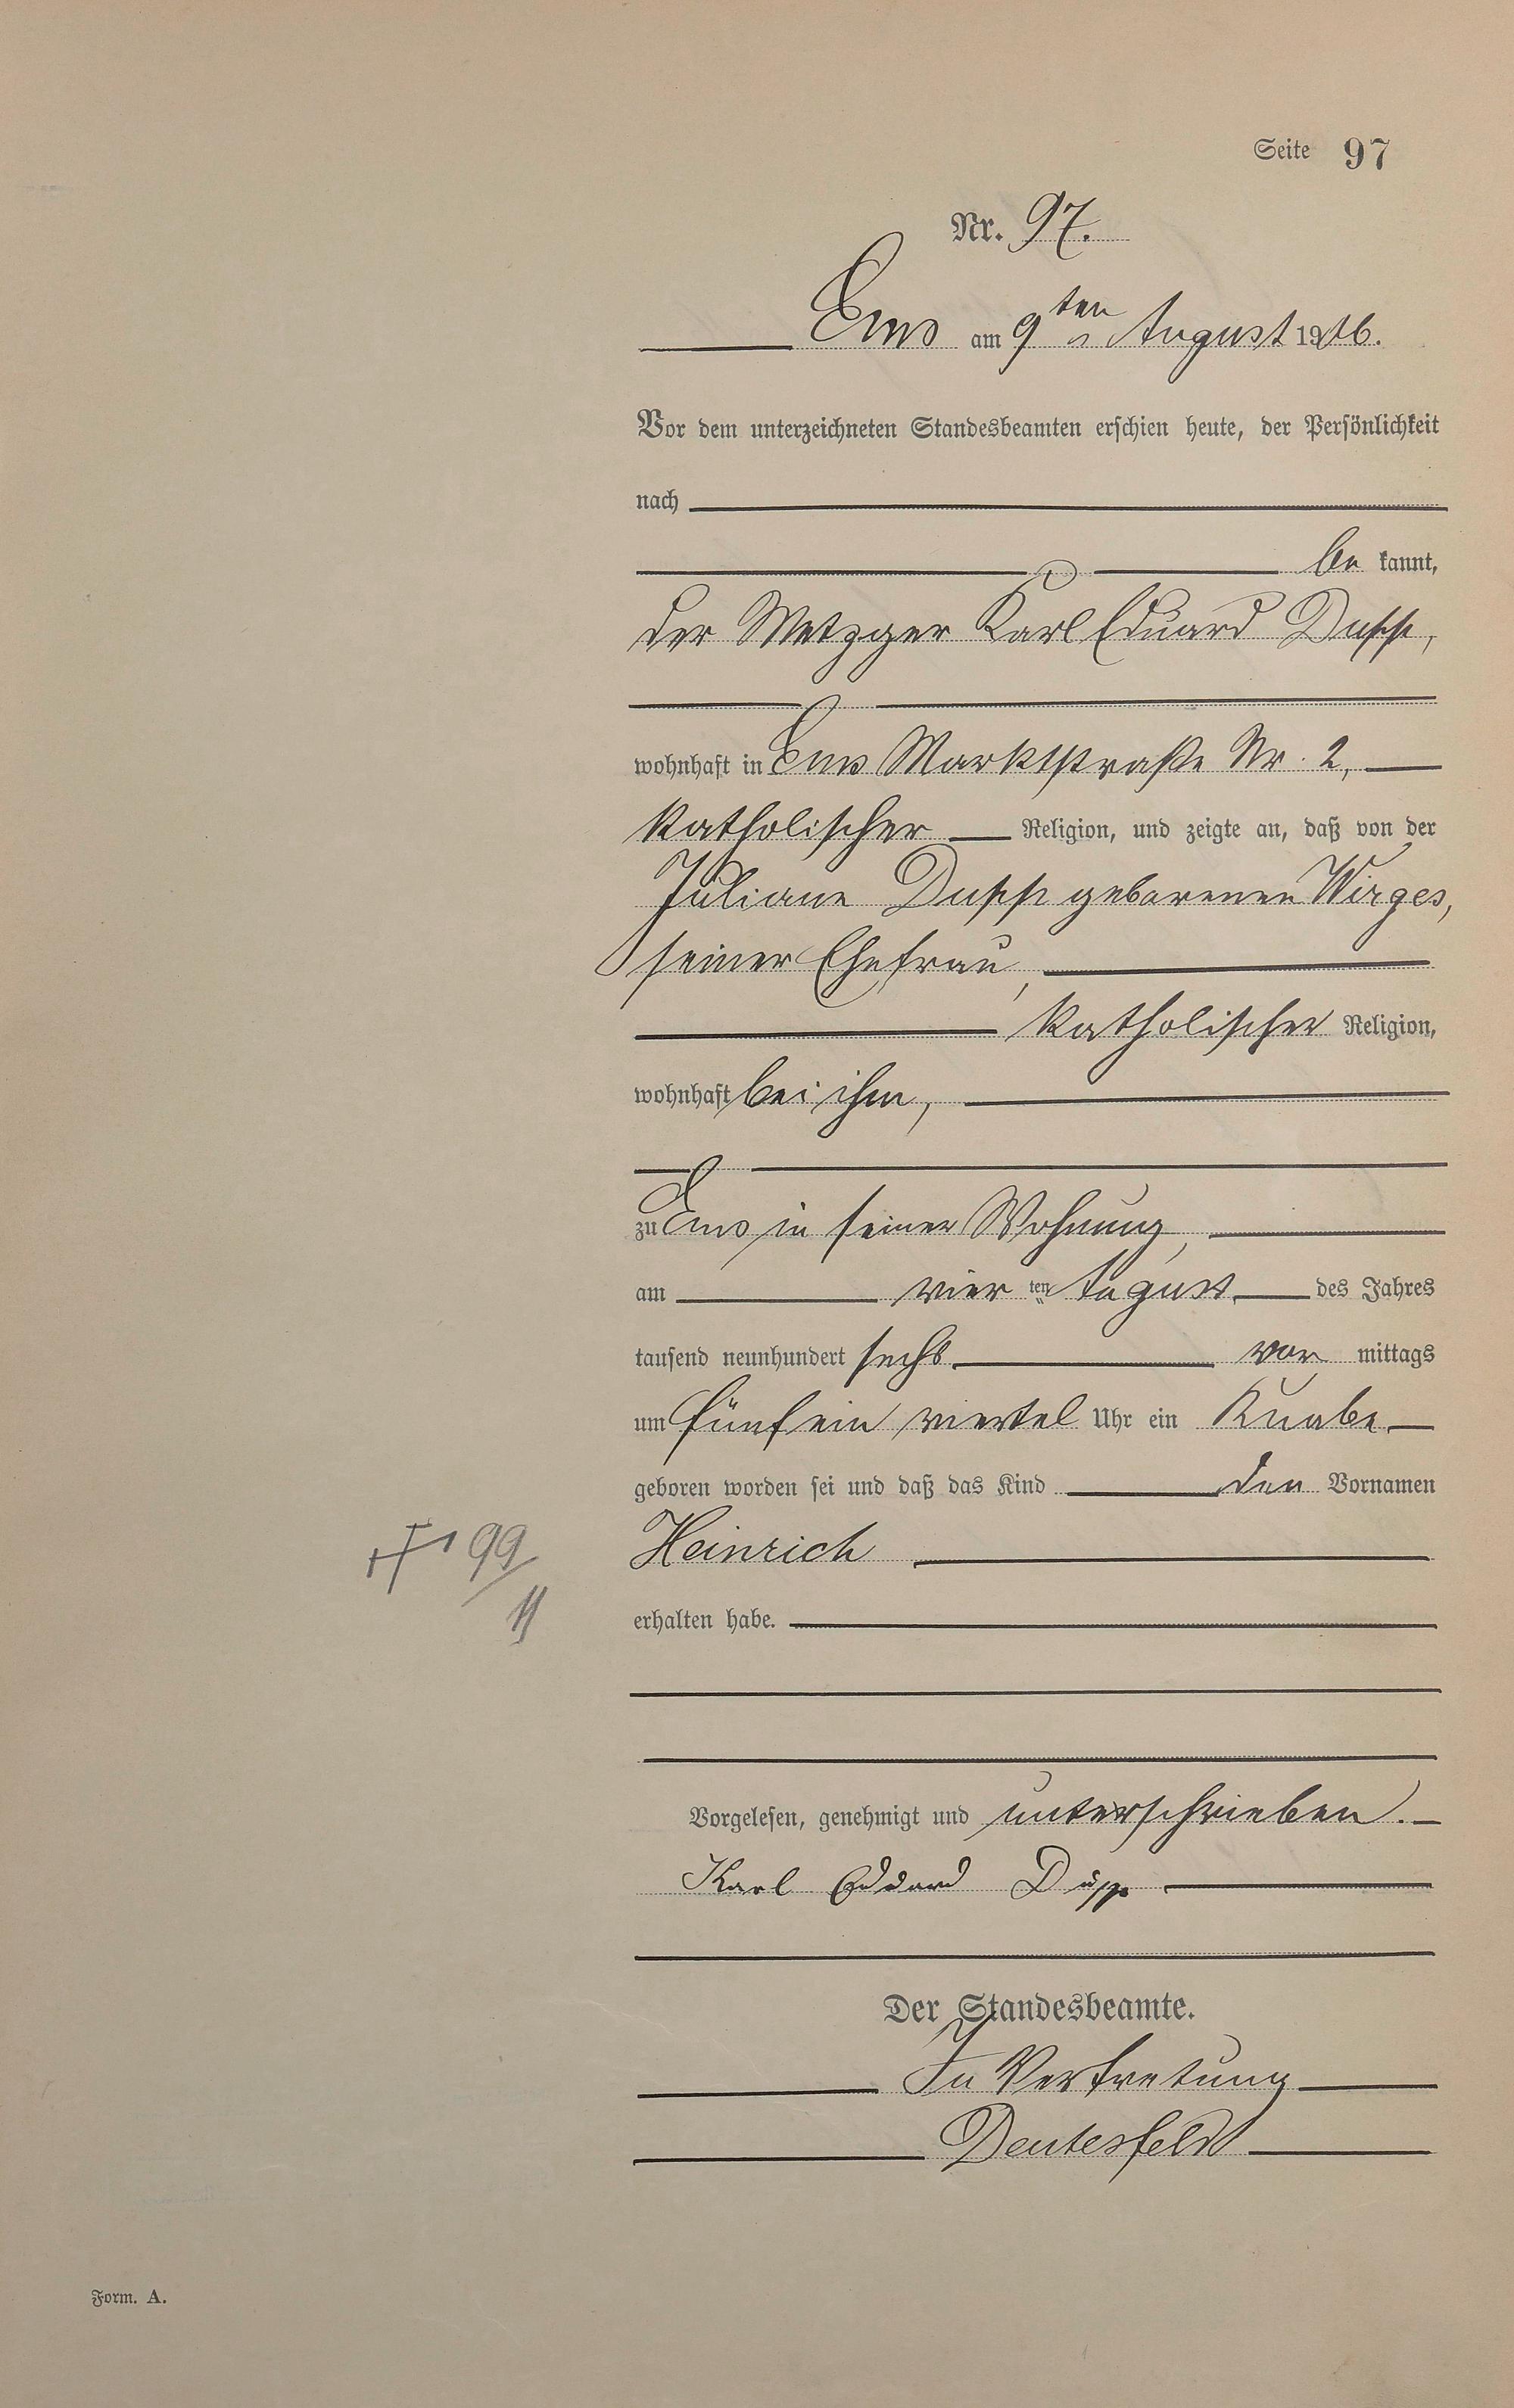 Seite 97
Nr. 97.
Ems am 9ten August 1906.
Vor dem unterzeichneten Standesbeamten erschien heute, der Persönlichkeit
nach
be kannt,
der Metzger Karl Eduard Dupp,
wohnhaft in Ems Marktstraße Nr. 2,
katholischer Religion, und zeigte an, daß von der
Juliane Dupp geborenen Wirges,
seiner Ehefrau,
katholischer Religion,
wohnhaft bei ihm,
zu Ems in seiner Wohnung,
am vier ten August des Jahres
tausend neunhundert sechs vor mittags
um fünf ein viertel Uhr ein Knabe
geboren worden sei und daß das Kind den Vornamen
Heinrich
99
11
erhalten habe.
Vorgelesen, genehmigt und unterschrieben.
Karl Eduard Dupp
Der Standesbeamte.
In Vertretung
Deutesfeld
Form. A.